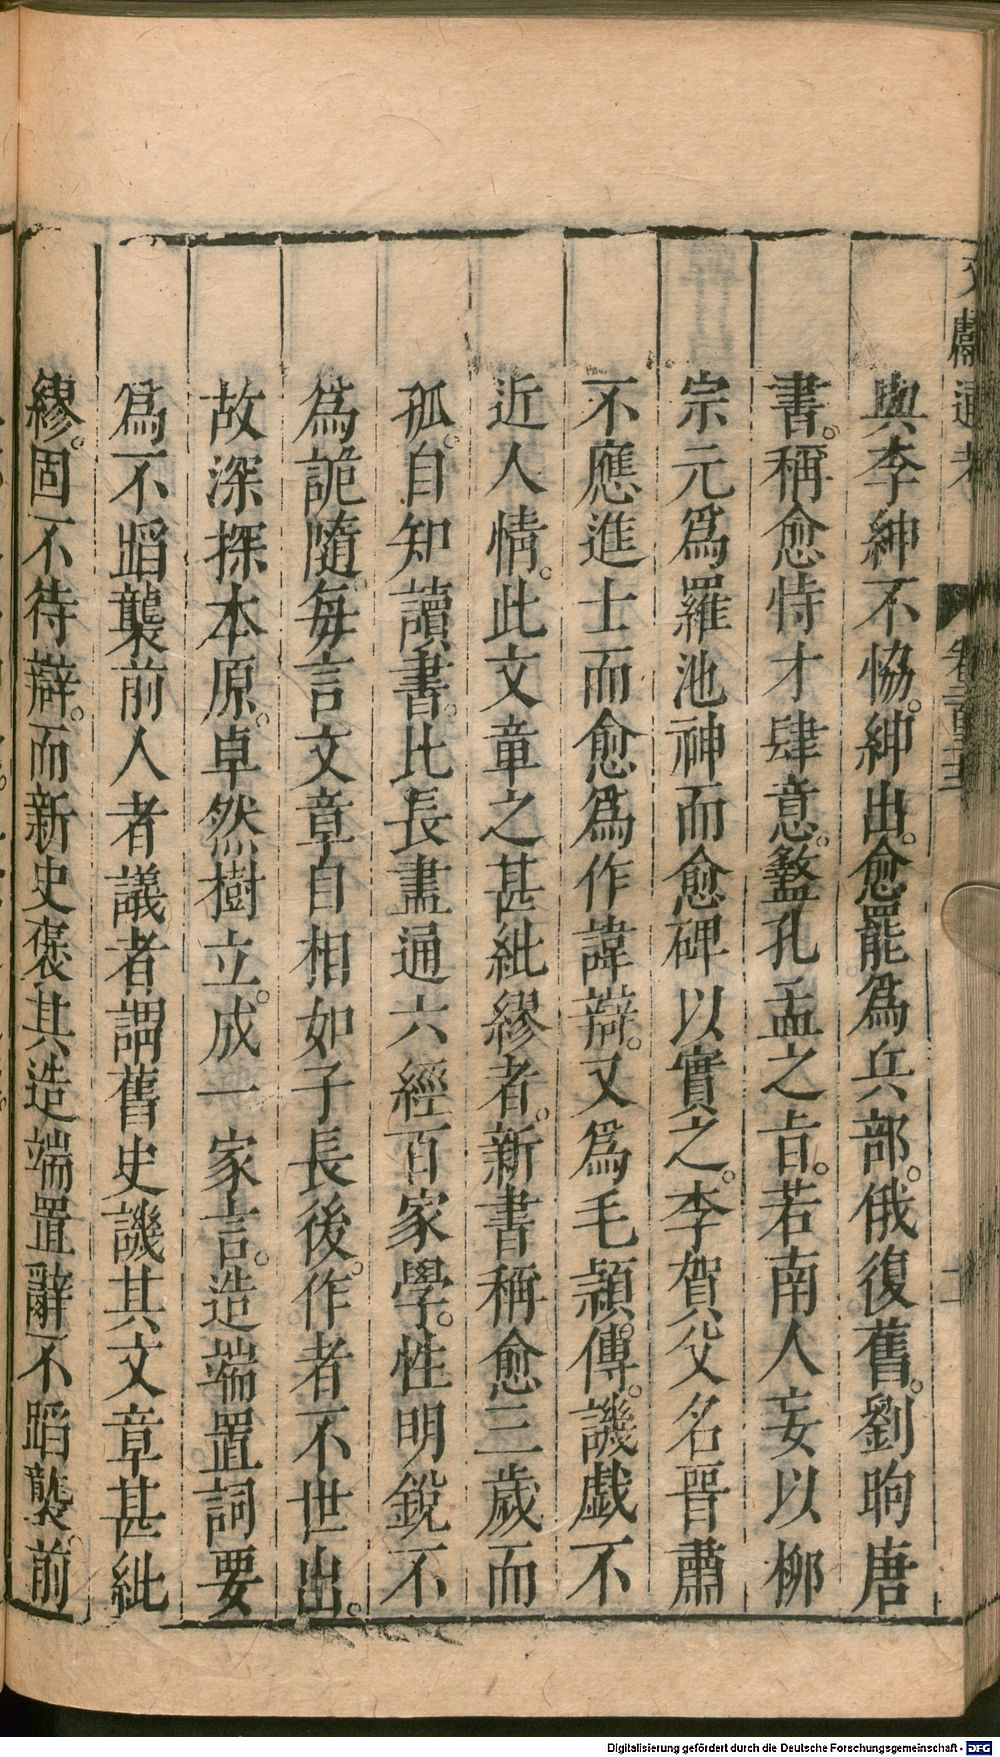 與李紳不恊。紳出。愈罷爲兵部。俄復舊。劉昫唐
書。稱愈恃才肆意。盭孔孟之㫖。若南人妄以柳
宗元爲羅池神而愈碑以實之。李賀父名晉肅
不應進士而愈爲作諱辯。又爲毛頴傳。譏戯不
近人情。此文章之甚紕繆者。新書稱愈三歲而
孤。自知讀書。比長盡通六經百家學。性明銳不
爲詭隨。每言文章自相如子長後。作者不世出。
故深探本原。卓然樹立。成一家言。造端置詞要
爲不蹈襲前人者議者謂舊史譏其文章甚紕
繆。固不待辯。而新史褒其造端置辭不蹈襲。前
文獻通考
卷二百三十二
二
Digitalisierung gefördert durch die Deutsche Forschungsgemeinschaft - DFG